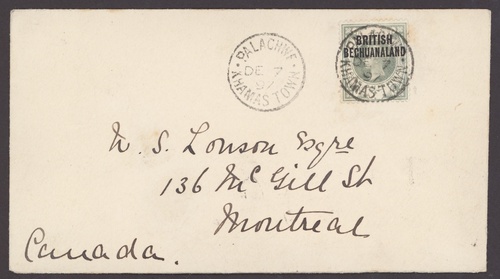 PALACHWE
DE 7
97
KHAMAS TOWN
BRITISH
BECHUANALAND
DE 7
97
KHAMAS TOWN
W. S. Lonson Esqre
136 McGill St
Montreal
Canada.